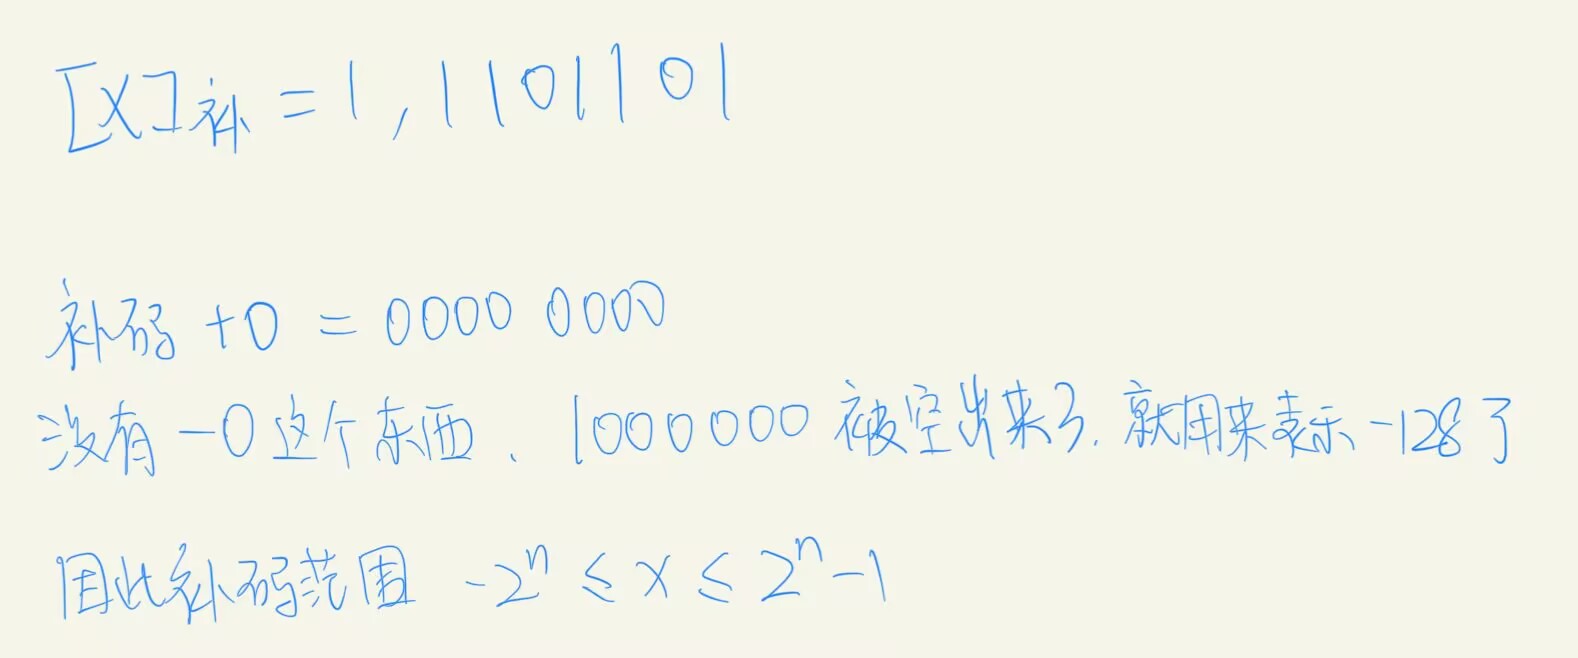 [X]补 = 1,1101101
补码 +0 = 0000 0000
没有 -0 这个东西、1000000 被空出来了.就用来表示 -128 了
因此补码范围 -2ⁿ ≤ x ≤ 2ⁿ-1